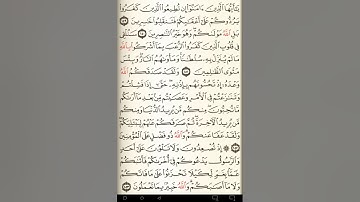 يَٰٓأَيُّهَا ٱلَّذِينَ ءَامَنُوٓا۟ إِن تُطِيعُوا۟ ٱلَّذِينَ كَفَرُوا۟
يَرُدُّوكُمْ عَلَىٰٓ أَعْقَٰبِكُمْ فَتَنقَلِبُوا۟ خَٰسِرِينَ ١٤٩
بَلِ ٱللَّهُ مَوْلَىٰكُمْ وَهُوَ خَيْرُ ٱلنَّٰصِرِينَ ١٥٠ سَنُلْقِى
فِى قُلُوبِ ٱلَّذِينَ كَفَرُوا۟ ٱلرُّعْبَ بِمَآ أَشْرَكُوا۟ بِٱللَّهِ
مَا لَمْ يُنَزِّلْ بِهِۦ سُلْطَٰنًا وَمَأْوَىٰهُمُ ٱلنَّارُ وَبِئْسَ
مَثْوَى ٱلظَّٰلِمِينَ ١٥١ وَلَقَدْ صَدَقَكُمُ ٱللَّهُ
وَعْدَهُۥٓ إِذْ تَحُسُّونَهُم بِإِذْنِهِۦ حَتَّىٰٓ إِذَا فَشِلْتُمْ
وَتَنَٰزَعْتُمْ فِى ٱلْأَمْرِ وَعَصَيْتُم مِّنۢ بَعْدِ مَآ أَرَىٰكُم
مَّا تُحِبُّونَ مِنكُم مَّن يُرِيدُ ٱلدُّنْيَا وَمِنكُم
مَّن يُرِيدُ ٱلْءَاخِرَةَ ثُمَّ صَرَفَكُمْ عَنْهُمْ لِيَبْتَلِيَكُمْ
وَلَقَدْ عَفَا عَنكُمْ وَٱللَّهُ ذُو فَضْلٍ عَلَى ٱلْمُؤْمِنِينَ
١٥٢ إِذْ تُصْعِدُونَ وَلَا تَلْوُۥنَ عَلَىٰٓ أَحَدٍ
وَٱلرَّسُولُ يَدْعُوكُمْ فِىٓ أُخْرَىٰكُمْ فَأَثَٰبَكُمْ
غَمًّۢا بِغَمٍّ لِّكَيْلَا تَحْزَنُوا۟ عَلَىٰ مَا فَاتَكُمْ
وَلَا مَآ أَصَٰبَكُمْ وَٱللَّهُ خَبِيرٌۢ بِمَا تَعْمَلُونَ ١٥٣